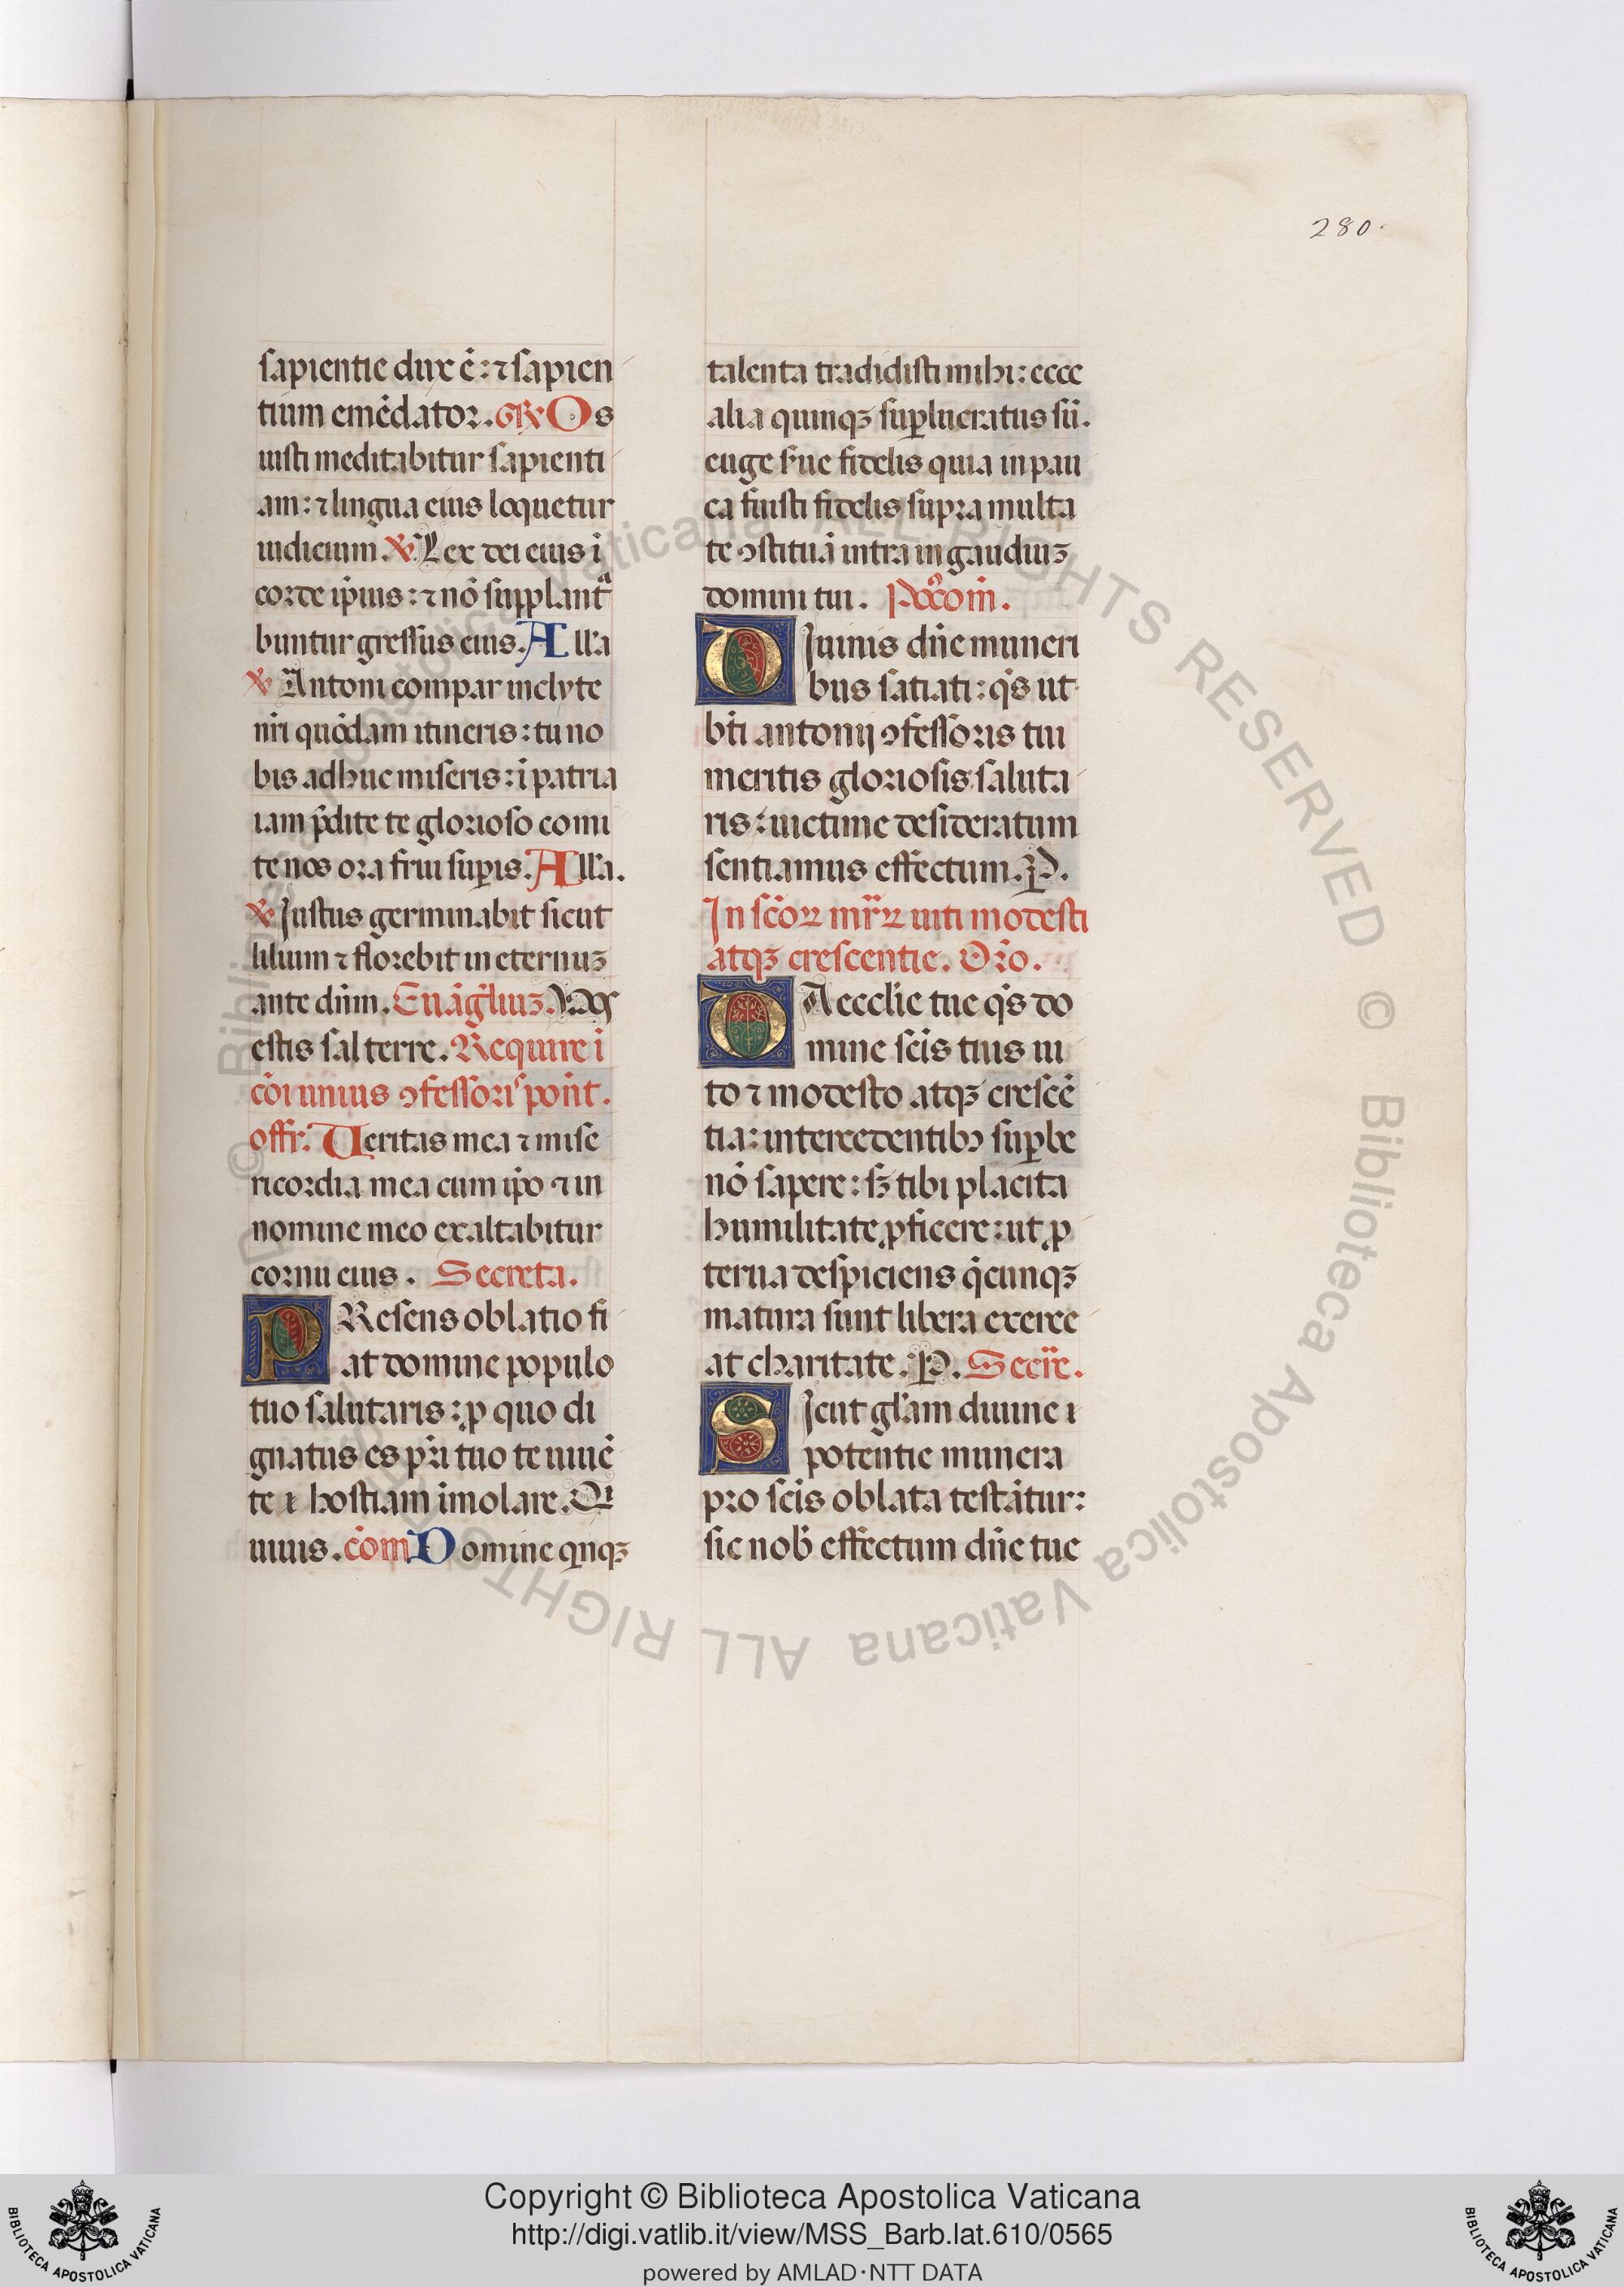 280.
sapientie dux ē: ⁊ sapien
tium emēdator. GR Os
iusti meditabitur sapienti
am: ⁊ lingua eius loquetur
iudicium. ℣ Lex dei eius ī
corde ip̄ius: ⁊ nō supplanta
buntur gressus eius. All'a
℣ Antoni compar inclyte
nr̄i quōdam itineris: tu no
bis adhuc miseris: ī patria
iam p̄dite te glorioso comi
te nos ora frui suꝑis. All'a.
℣ Iustus germinabit sicut
lilium ⁊ florebit in eternuꝫ
ante dn̄m. Euāgl̄iuꝫ. Uos
estis sal terre. Require ī
cōi unius ꝯfessoris pont̄.
offr̄. Ueritas mea ⁊ mise
ricordia mea cum ip̄o ⁊ in
nomine meo exaltabitur
cornu eius. Secreta.
PResens oblatio fi
at domine populo
tuo salutaris: ꝑ quo di
gnatus es pr̄i tuo te uiuē
te ī hostiam īmolare. Qi
uiuis. cōm Domine qnqꝫ
talenta tradidisti mihi: ecce
alia quinqꝫ suꝑlucratus sū.
euge s'ue fidelis quia in pau
ca fuisti fidelis supra multa
te ꝯstituā intra in gaudiuꝫ
domini tui. Poꝯom̄.
DIuinis dn̄e muneri
bus satiati: qs̄ ut
bt̄i antonij ꝯfessoris tui
meritis gloriosis saluta
ris: uictime desideratum
sentiamus effectum. P.
In sc̄oꝝ mr̄ꝝ uiti modesti
atqꝫ crescentie. Or̄o.
DA eccl'ie tue qs̄ do
mine sc̄is tuis ui
to ⁊ modesto atqꝫ crescē
tia: intercedentibꝰ suꝑbe
nō sapere: sꝫ tibi placita
humilitate ꝓficere: ut ꝓ
terua despiciens q̄cunqꝫ
matura sunt libera exerce
at charitate. P. Secr̄e.
SIcut gl'am diuine
potentie munera
pro sc̄is oblata testātur:
sic nob̄ effectum dn̄e tue
© Biblioteca Apostolica Vaticana ALL RIGHTS RESERVED
Copyright © Biblioteca Apostolica Vaticana
http://digi.vatlib.it/view/MSS_Barb.lat.610/0565
powered by AMLAD·NTT DATA
BIBLIOTECA APOSTOLICA VATICANA
BIBLIOTECA APOSTOLICA VATICANA